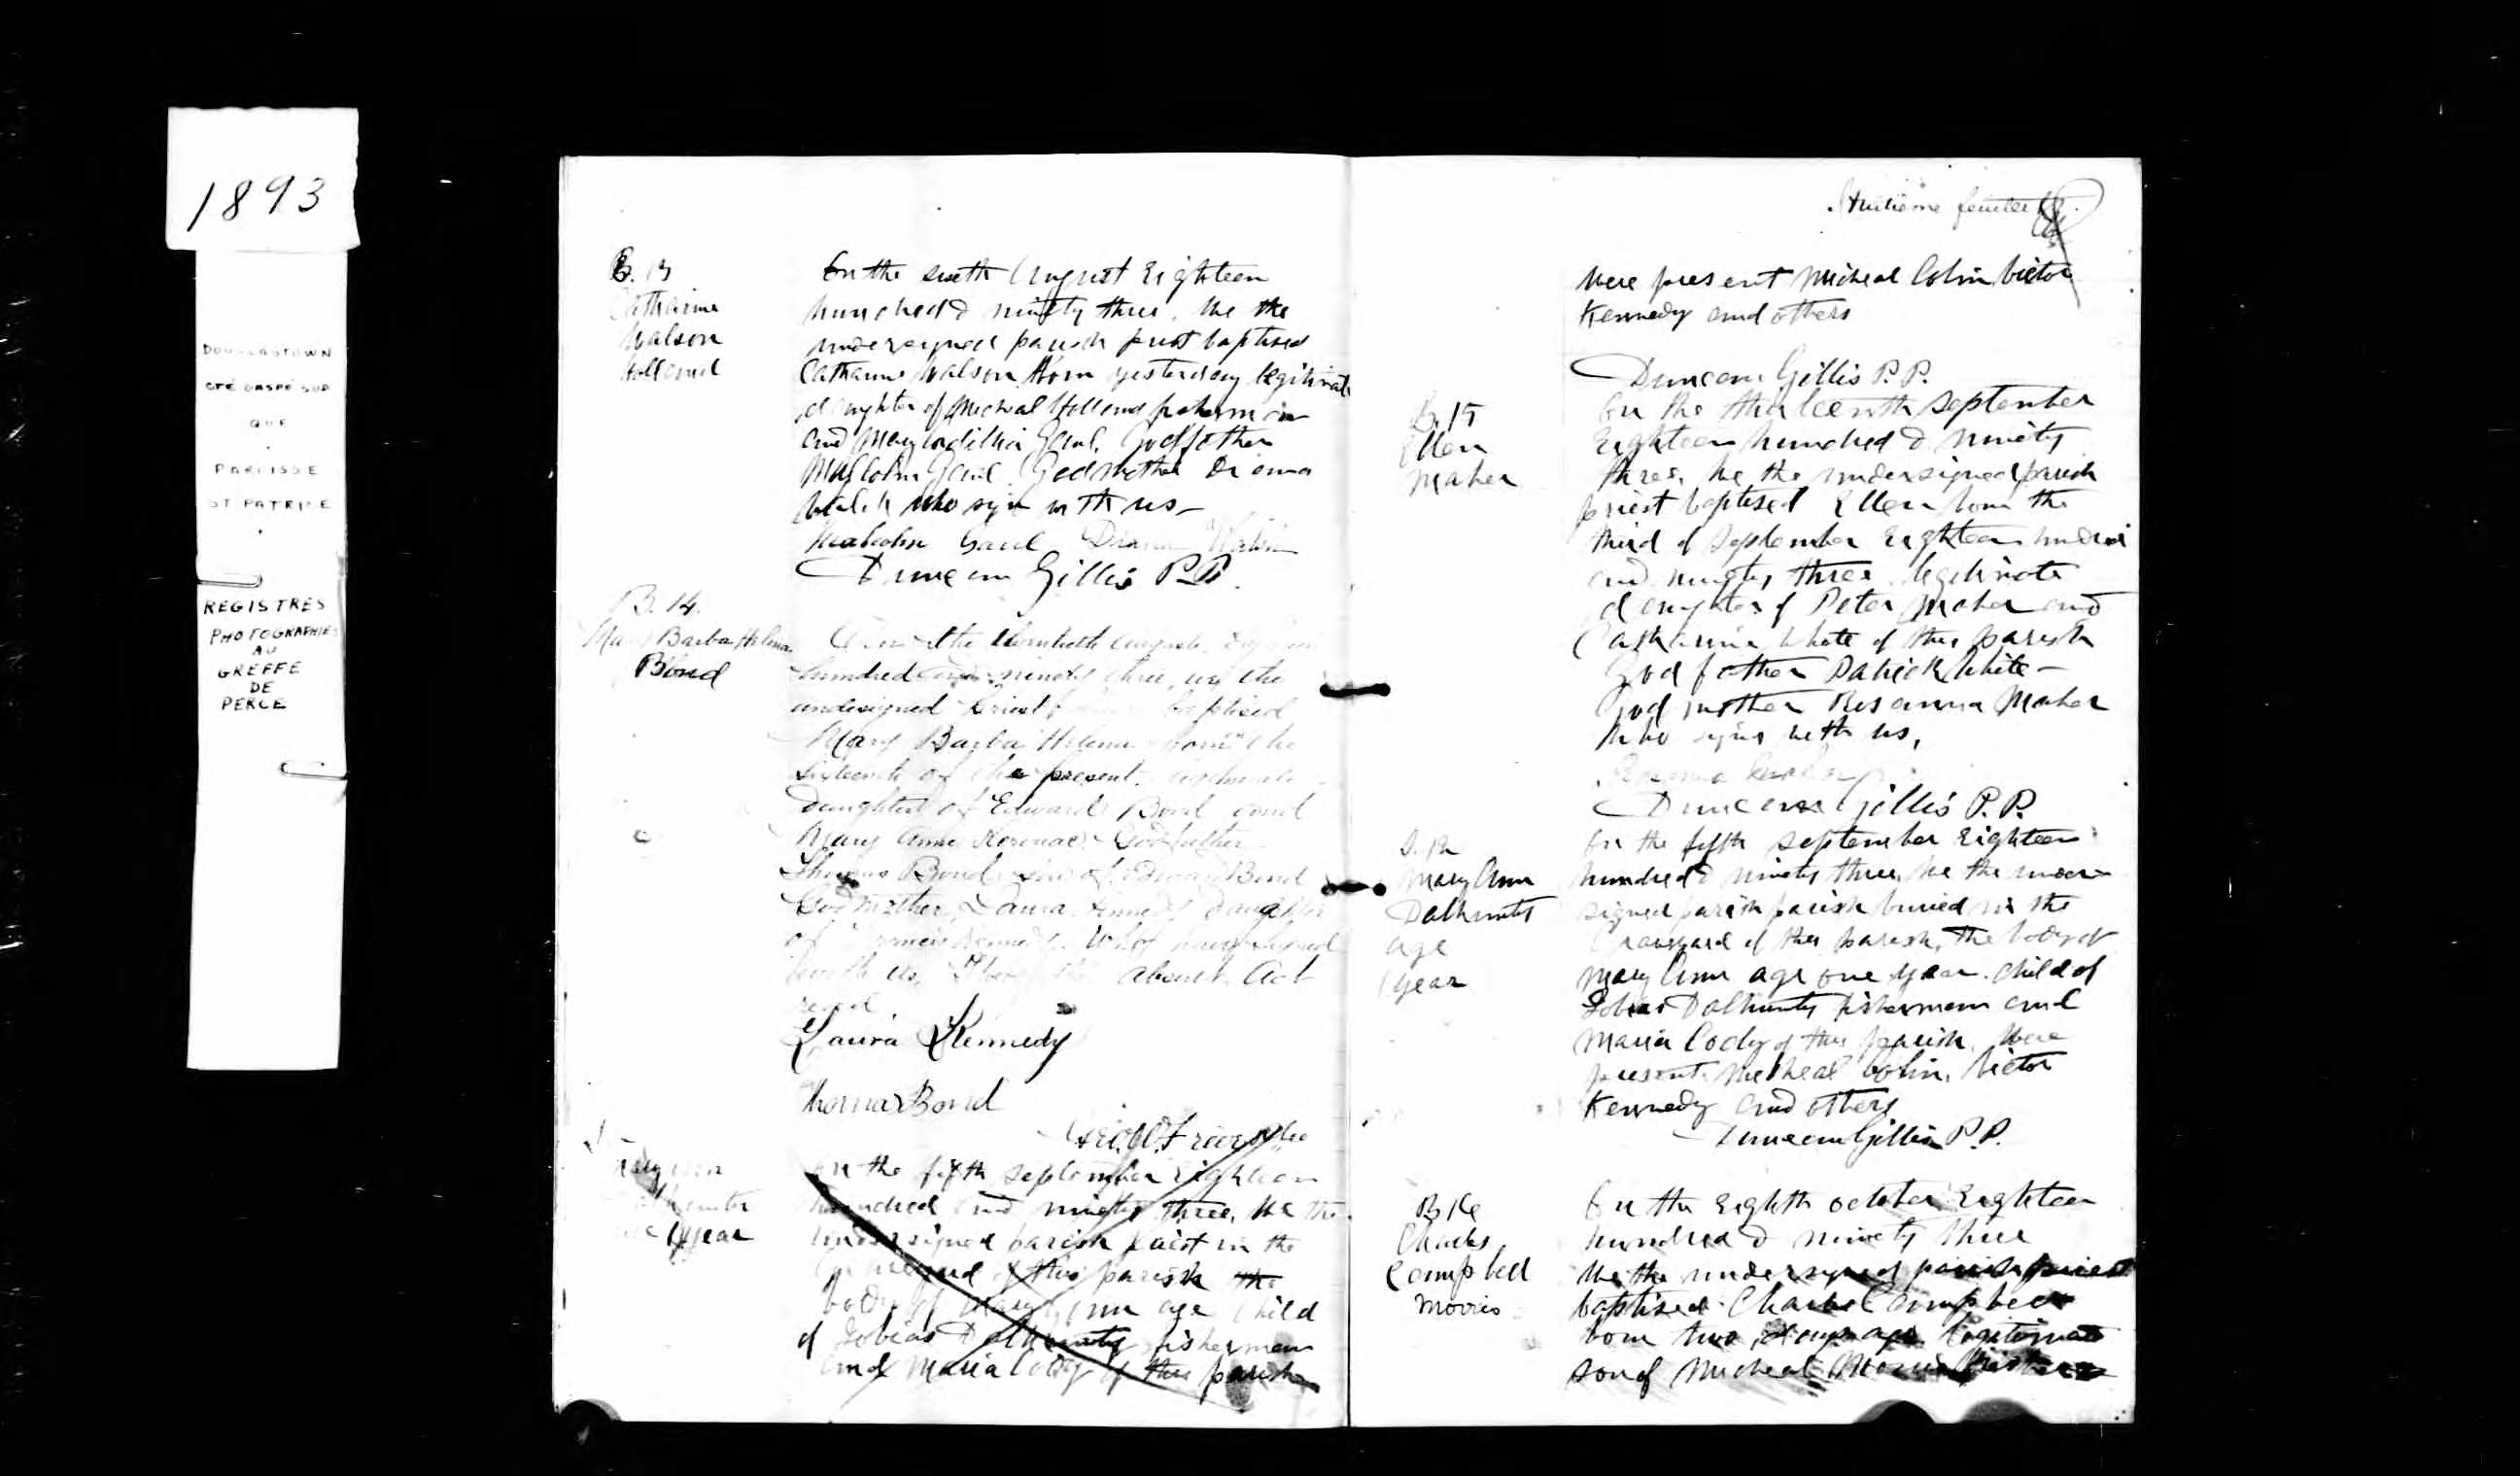 1893
DOUGLASTOWN
CTÉ GASPÉ SUD
QUE
PAROISSE
ST PATRICE
REGISTRES
PHOTOGRAPHIES
AU
GREFFE
DE
PERCE
B. 13
Catharine
Watson
Holland
On the sixth August Eighteen
hundred & ninety three, We the
undersigned parish priest baptised
Catharine Watson born yesterday legitimate
daughter of Micheal Holland fisherman
and Mary Gaul, Godfather
Malcolm Gaul Godmother Diana
Walsh who sign with us
Malcolm Gaul Diana
Duncan Gillis P.P.
B. 14.
Mary Barba Helena
Bond
On the twentieth August
hundred and ninety three, we the
undersigned Priest baptised
Mary Barba Helena born the
sixteenth of the present.
Daughter of Edward Bond and
Mary Anne Godfather
Thomas Bond son of Edward Bond
Godmother Laura Kennedy daughter
of Francis Kennedy. Who have signed
with us, absent. Act
read
Laura Kennedy
Thomas Bond
Mary Ann
age 1 year
On the fifth september Eighteen
hundred and ninety three, We the
undersigned parish priest in the
Graveyard of this parish the
body of Mary Ann age child
of Tobias Dalhunty fisherman
and Maria Cody of this parish
Huitieme feuillet
Were present Micheal Colin Victor
Kennedy and others
Duncan Gillis P.P.
B. 15
Ellen
Maher
On the thirteenth September
Eighteen hundred & ninety
three, We the undersigned parish
priest baptised Ellen born the
third of September Eighteen hundred
and ninety three legitimate
daughter of Peter Maher and
Catharine White of this parish
God father Patrick White
God mother Rosanna Maher
who signs with us,
Duncan Gillis P.P.
Mary Ann
Dalhunty
age
1 year
On the fifth september Eighteen
hundred & ninety three, We the under
signed parish parish buried in the
Graveyard of this parish, the body of
Mary Ann age one year. child of
Tobias Dalhunty fisherman and
Maria Cody of this parish. Were
present Micheal Colin, Victor
Kennedy and others
Duncan Gillis P.P.
B 16
Charles
Campbell
Morris
On the Eighth october Eighteen
hundred & ninety three
We the undersigned parish priest
baptised Charles Campbell
born two days ago legitimate
son of Micheal Morris